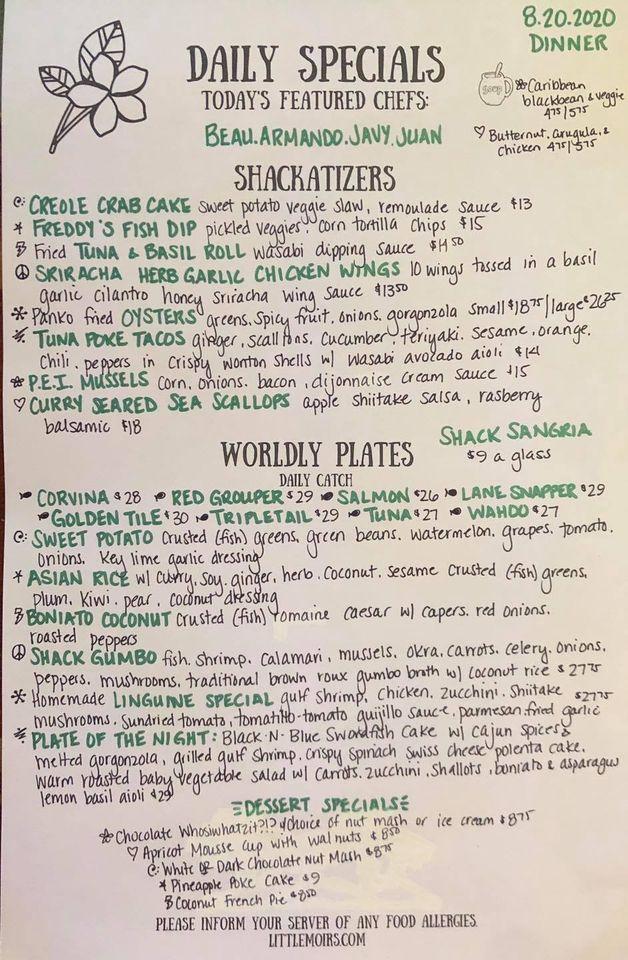 8.20.2020
DINNER
DAILY SPECIALS
TODAY'S FEATURED CHEFS:
BEAU.ARMANDO.JAVY.JUAN
Soup
Caribbean
blackbean & veggie
4.75/5.75
Butternut, arugula, &
chicken 4.75/5.75
SHACKATIZERS
CREOLE CRAB CAKE sweet potato veggie slaw, remoulade sauce $13
FREDDY'S FISH DIP pickled veggies. corn tortilla chips $15
Fried TUNA & BASIL ROLL wasabi dipping sauce $14.50
SRIRACHA HERB GARLIC CHICKEN WINGS 10 wings tossed in a basil
garlic cilantro honey sriracha wing sauce $13.50
Panko fried OYSTERS greens. spicy fruit. onions. gorgonzola small $18.75/large $26.25
TUNA POKE TACOS ginger, scallions. cucumber. teriyaki. sesame. orange.
chili. peppers in crispy wonton shells w/ wasabi avocado aioli $14
P.E.I. MUSSELS corn. onions. bacon, dijonnaise cream sauce $15
CURRY SEARED SEA SCALLOPS apple shiitake salsa, rasberry
balsamic $18
SHACK SANGRIA
$9 a glass
WORLDLY PLATES
DAILY CATCH
CORVINA $28 RED GROUPER $29 SALMON $26 LANE SNAPPER $29
GOLDEN TILE $30 TRIPLETAIL $29 TUNA $27 WAHOO $27
SWEET POTATO crusted (fish) greens, green beans. watermelon. grapes. tomato.
onions. Key lime garlic dressing
ASIAN RICE w/ curry. soy. ginger. herb. coconut. sesame crusted (fish) greens,
plum. kiwi. pear. coconut dressing
BONIATO COCONUT crusted (fish) romaine caesar w/ capers. red onions.
roasted peppers
SHACK GUMBO fish. shrimp. calamari. mussels. okra. carrots. celery. onions.
peppers. mushrooms. traditional brown roux gumbo broth w/ coconut rice $27.75
Homemade LINGUINE SPECIAL gulf shrimp, chicken, zucchini. shiitake $27.75
mushrooms. sundried tomato, tomatillo-tomato guijillo sauce, parmesan.fried garlic
PLATE OF THE NIGHT: Black·N·Blue Swordfish Cake w/ cajun spices &
melted gorgonzola, grilled gulf shrimp. crispy spinach swiss cheese polenta cake.
warm roasted baby vegetable salad w/ carrots. zucchini. shallots. boniato & asparagus
lemon basil aioli $29
DESSERT SPECIALS
Chocolate Whosiwhatzit?!? w/choice of nut mash or ice cream $8.75
Apricot Mousse Cup with walnuts $8.50
White OR Dark Chocolate Nut Mash $8.75
Pineapple Poke Cake $9
Coconut French Pie $8.50
PLEASE INFORM YOUR SERVER OF ANY FOOD ALLERGIES.
LITTLEMOIRS.COM